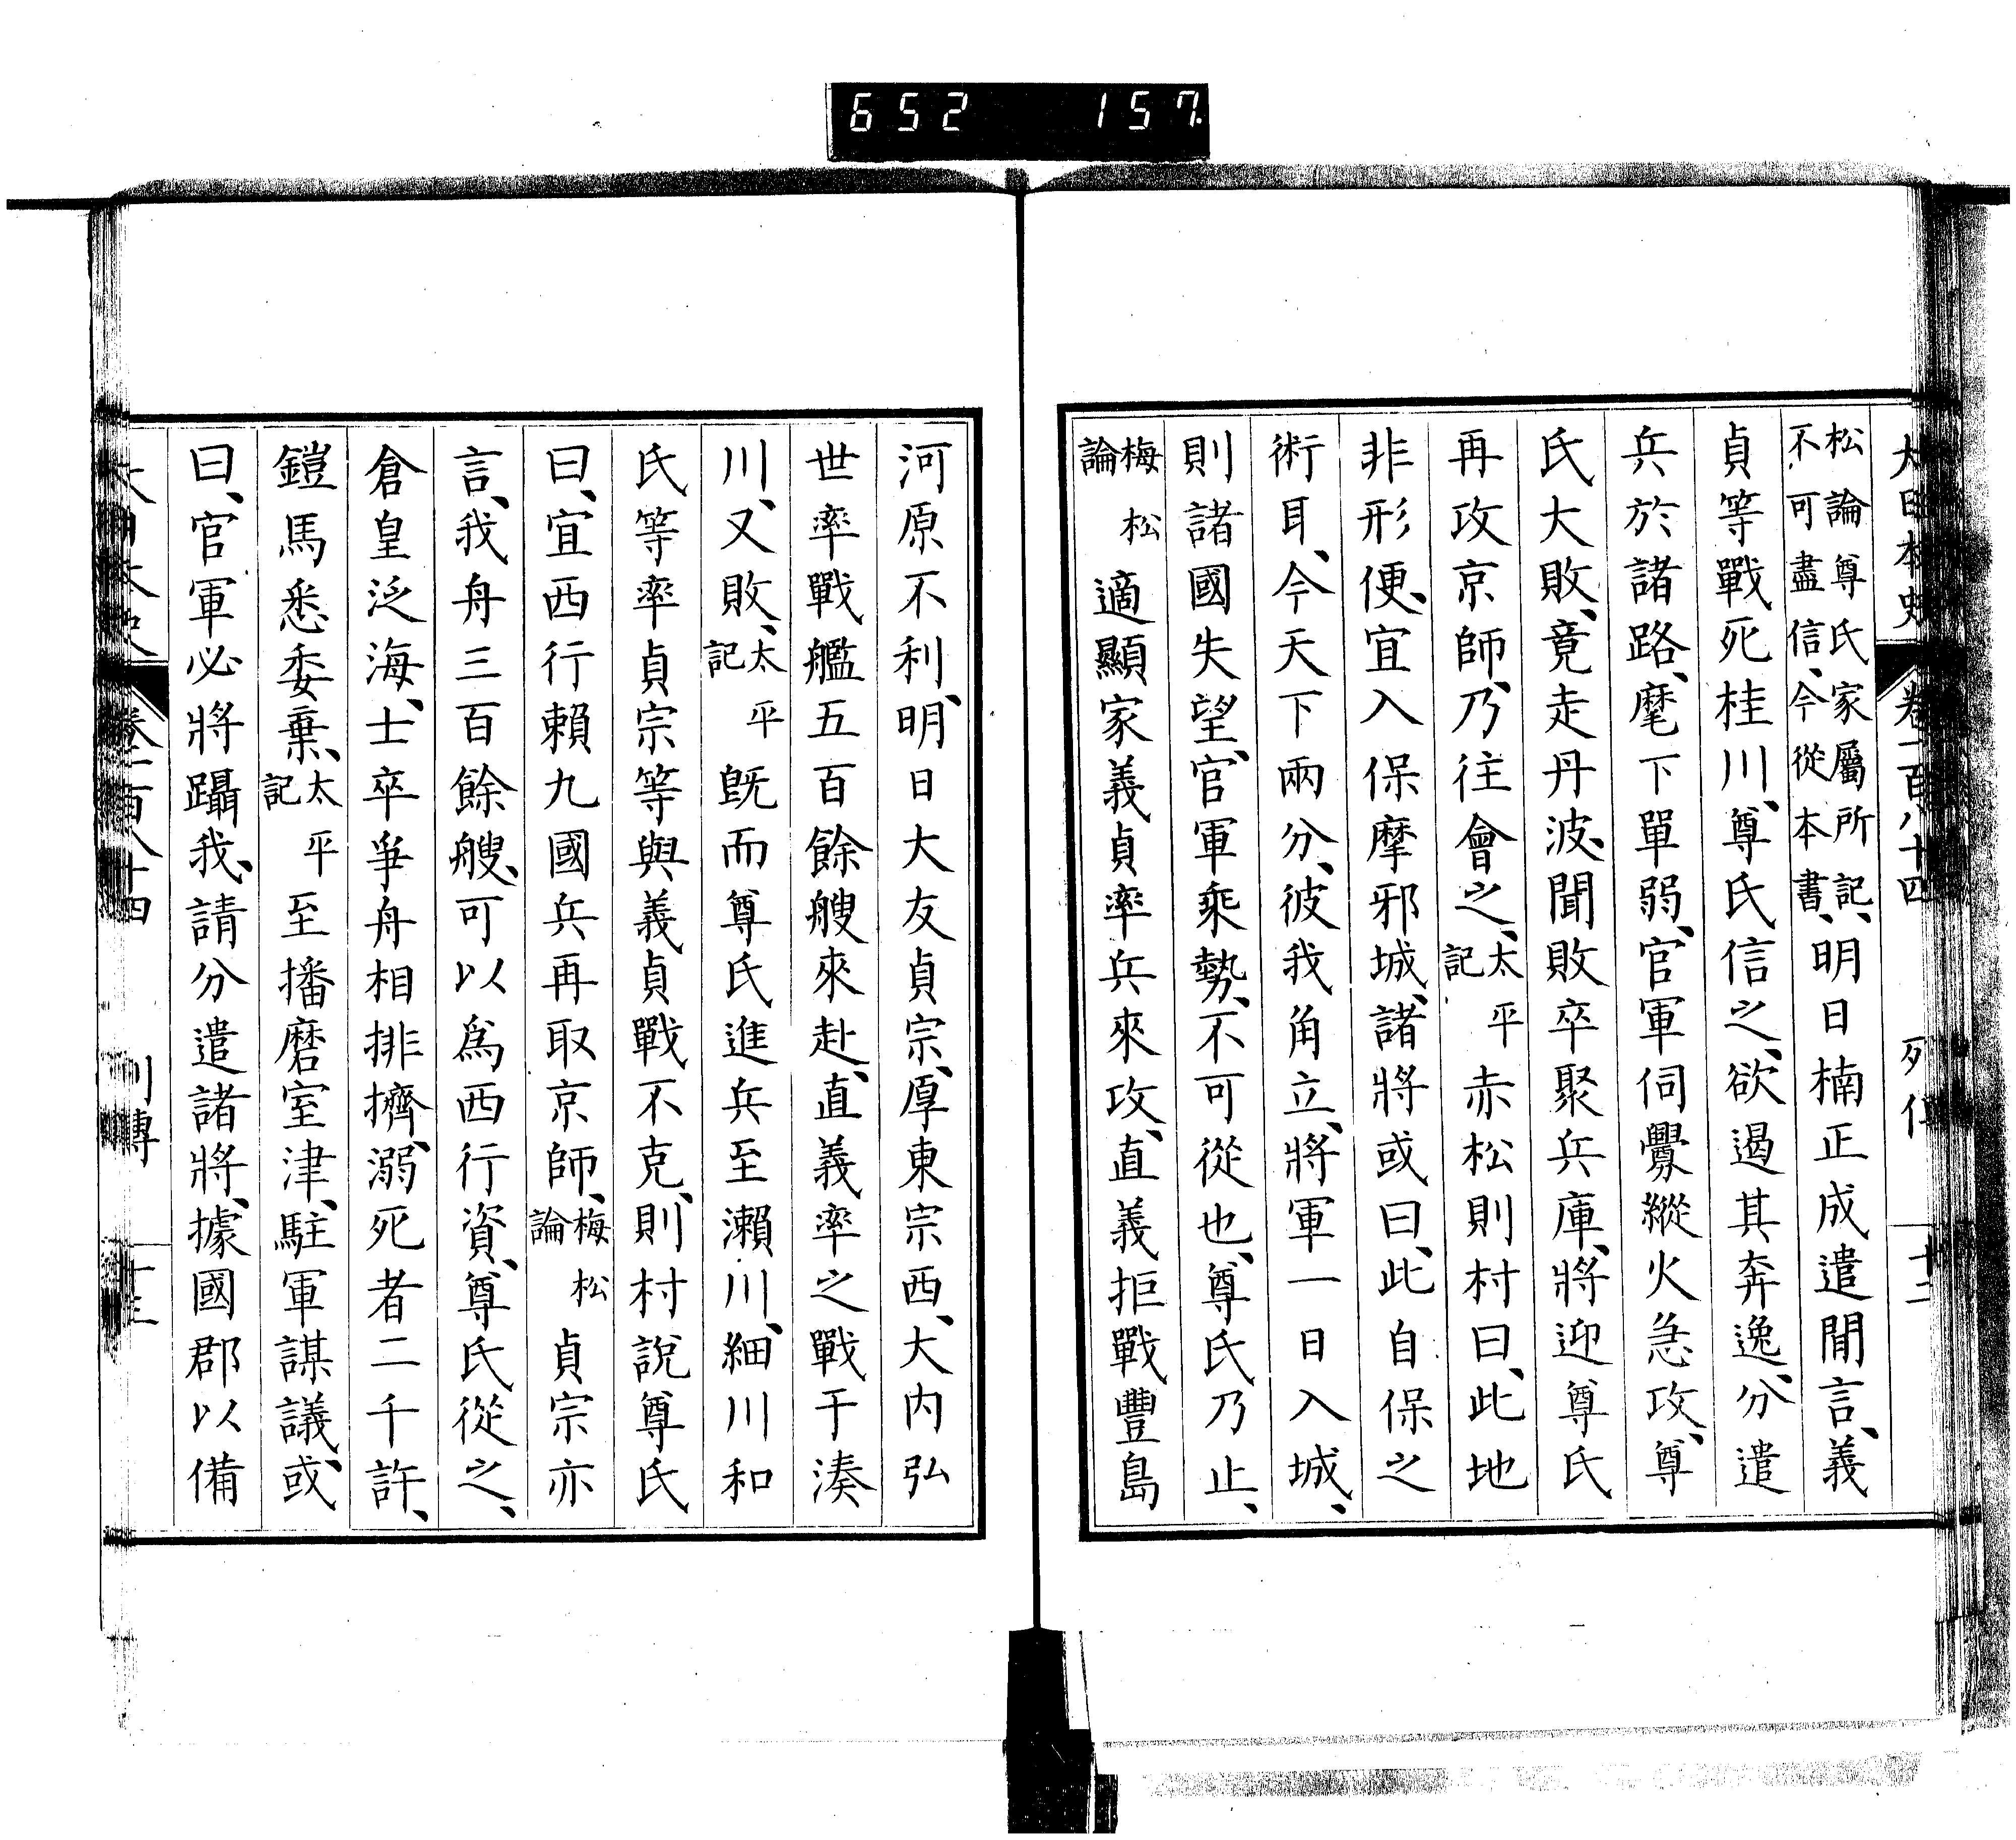 652 157
大日本史 卷一百八十四 列傳 十二
松論尊氏家屬所記、
不可盡信、今從本書、
明日楠正成遣間言、義
貞等戰死桂川、尊氏信之、欲遏其奔逸、分遣
兵於諸路、麾下單弱、官軍伺釁縱火急攻、尊
氏大敗、竟走丹波、聞敗卒聚兵庫、將迎尊氏
再攻京師、乃往會之、太平記赤松則村曰、此地
非形便、宜入保摩邪城、諸將或曰、此自保之
術耳、今天下兩分、彼我角立、將軍一日入城、
則諸國失望、官軍乘勢、不可從也、尊氏乃止、
梅松論適顯家義貞率兵來攻、直義拒戰豐島
河原不利、明日大友貞宗、厚東宗西、大内弘
世率戰艦五百餘艘來赴、直義率之戰于湊
川、又敗、太平記既而尊氏進兵至瀨川、細川和
氏等率貞宗等與義貞戰不克、則村說尊氏
曰、宜西行賴九國兵再取京師、梅松論貞宗亦
言、我舟三百餘艘、可以爲西行資、尊氏從之、
倉皇泛海、士卒爭舟相排擠、溺死者二千許、
鎧馬悉委棄、太平記至播磨室津、駐軍謀議、或
曰、官軍必將躡我、請分遣諸將、據國郡以備
大日本史 卷一百八十四 列傳 十三